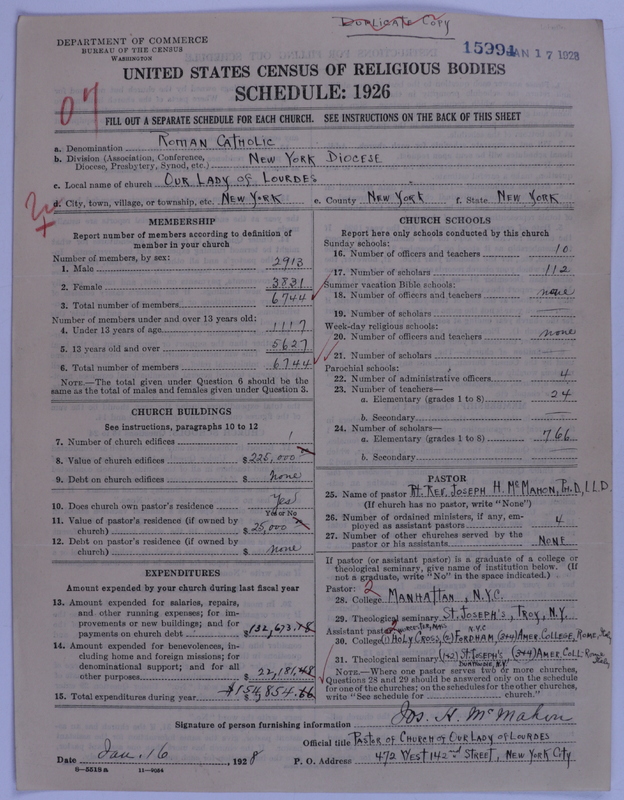 DUPLICATE COPY
DEPARTMENT OF COMMERCE
BUREAU OF THE CENSUS
WASHINGTON
15991 JAN 17 1928
UNITED STATES CENSUS OF RELIGIOUS BODIES
SCHEDULE: 1926
07
FILL OUT A SEPARATE SCHEDULE FOR EACH CHURCH. SEE INSTRUCTIONS ON THE BACK OF THIS SHEET
a. Denomination ROMAN CATHOLIC
b. Division (Association, Conference, Diocese, Presbytery, Synod, etc.) NEW YORK DIOCESE
c. Local name of church OUR LADY OF LOURDES
d. City, town, village, or township, etc. NEW YORK e. County NEW YORK f. State NEW YORK
MEMBERSHIP
Report number of members according to definition of
member in your church
Number of members, by sex:
1. Male 2913
2. Female 3831
3. Total number of members 6744
Number of members under and over 13 years old:
4. Under 13 years of age 1117
5. 13 years old and over 5627
6. Total number of members 6744
NOTE.—The total given under Question 6 should be the
same as the total of males and females given under Question 3.
CHURCH BUILDINGS
See instructions, paragraphs 10 to 12
7. Number of church edifices 1
8. Value of church edifices $225,000
9. Debt on church edifices $ none
10. Does church own pastor's residence Yes
Yes or No
11. Value of pastor's residence (if owned by
church) $ 25,000
12. Debt on pastor's residence (if owned by
church) $ none
EXPENDITURES
Amount expended by your church during last fiscal year
13. Amount expended for salaries, repairs,
and other running expenses; for im-
provements or new buildings; and for
payments on church debt $132,673.18
14. Amount expended for benevolences, in-
cluding home and foreign missions; for
denominational support; and for all
other purposes $ 22,181.48
15. Total expenditures during year $154,854.66
CHURCH SCHOOLS
Report here only schools conducted by this church
Sunday schools:
16. Number of officers and teachers 10
17. Number of scholars 112
Summer vacation Bible schools:
18. Number of officers and teachers none
19. Number of scholars —
Week-day religious schools:
20. Number of officers and teachers none
21. Number of scholars —
Parochial schools:
22. Number of administrative officers 4
23. Number of teachers—
a. Elementary (grades 1 to 8) 24
b. Secondary —
24. Number of scholars—
a. Elementary (grades 1 to 8) 766
b. Secondary —
PASTOR
25. Name of pastor Rt. Rev. JOSEPH H. McMAHON, PH.D, LL.D.
(If church has no pastor, write "None")
26. Number of ordained ministers, if any, em-
ployed as assistant pastors 4
27. Number of other churches served by the
pastor or his assistants NONE
If pastor (or assistant pastor) is a graduate of a college or
theological seminary, give name of institution below. (If
not a graduate, write "No" in the space indicated.)
Pastor: 2
28. College MANHATTAN, N.Y.C.
29. Theological seminary ST. JOSEPH'S, TROY, N.Y.
Assistant pastor: 2 N.Y.C.
30. College (1) HOLY CROSS, (2) FORDHAM (3+4) AMER. COLLEGE, ROME, Italy
31. Theological seminary (1+2) ST. JOSEPH'S (3+4) AMER. COLL. Rome, Italy
DUNWOODIE, N.Y.
NOTE.—Where one pastor serves two or more churches,
Questions 28 and 29 should be answered only on the schedule
for one of the churches; on the schedules for the other churches,
write "See schedule for church."
Signature of person furnishing information Jos. H. McMahon
Official title PASTOR OF CHURCH OF OUR LADY OF LOURDES
Date Jan. 16, 1928 P. O. Address 472 WEST 142nd STREET, NEW YORK CITY
6—5519a 11—9084